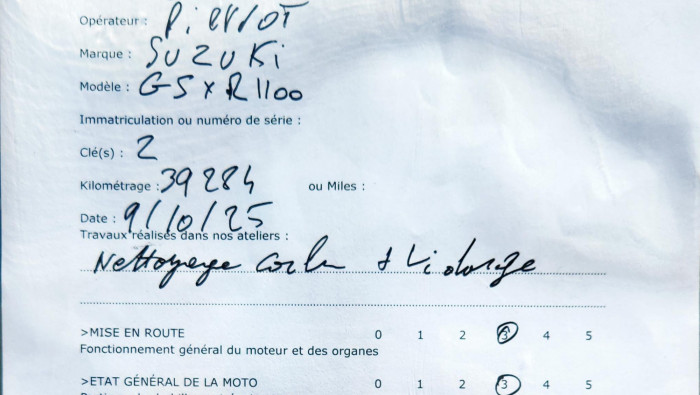 Opérateur : Pierrot
Marque : SUZUKi
Modèle : GSXR 1100
Immatriculation ou numéro de série :
Clé(s) : 2
Kilométrage : 39284 ou Miles :
Date : 9/10/25
Travaux réalisés dans nos ateliers :
Nettoyage carbu + Vidange
>MISE EN ROUTE 0 1 2 3 4 5
Fonctionnement général du moteur et des organes
>ETAT GÉNÉRAL DE LA MOTO 0 1 2 3 4 5